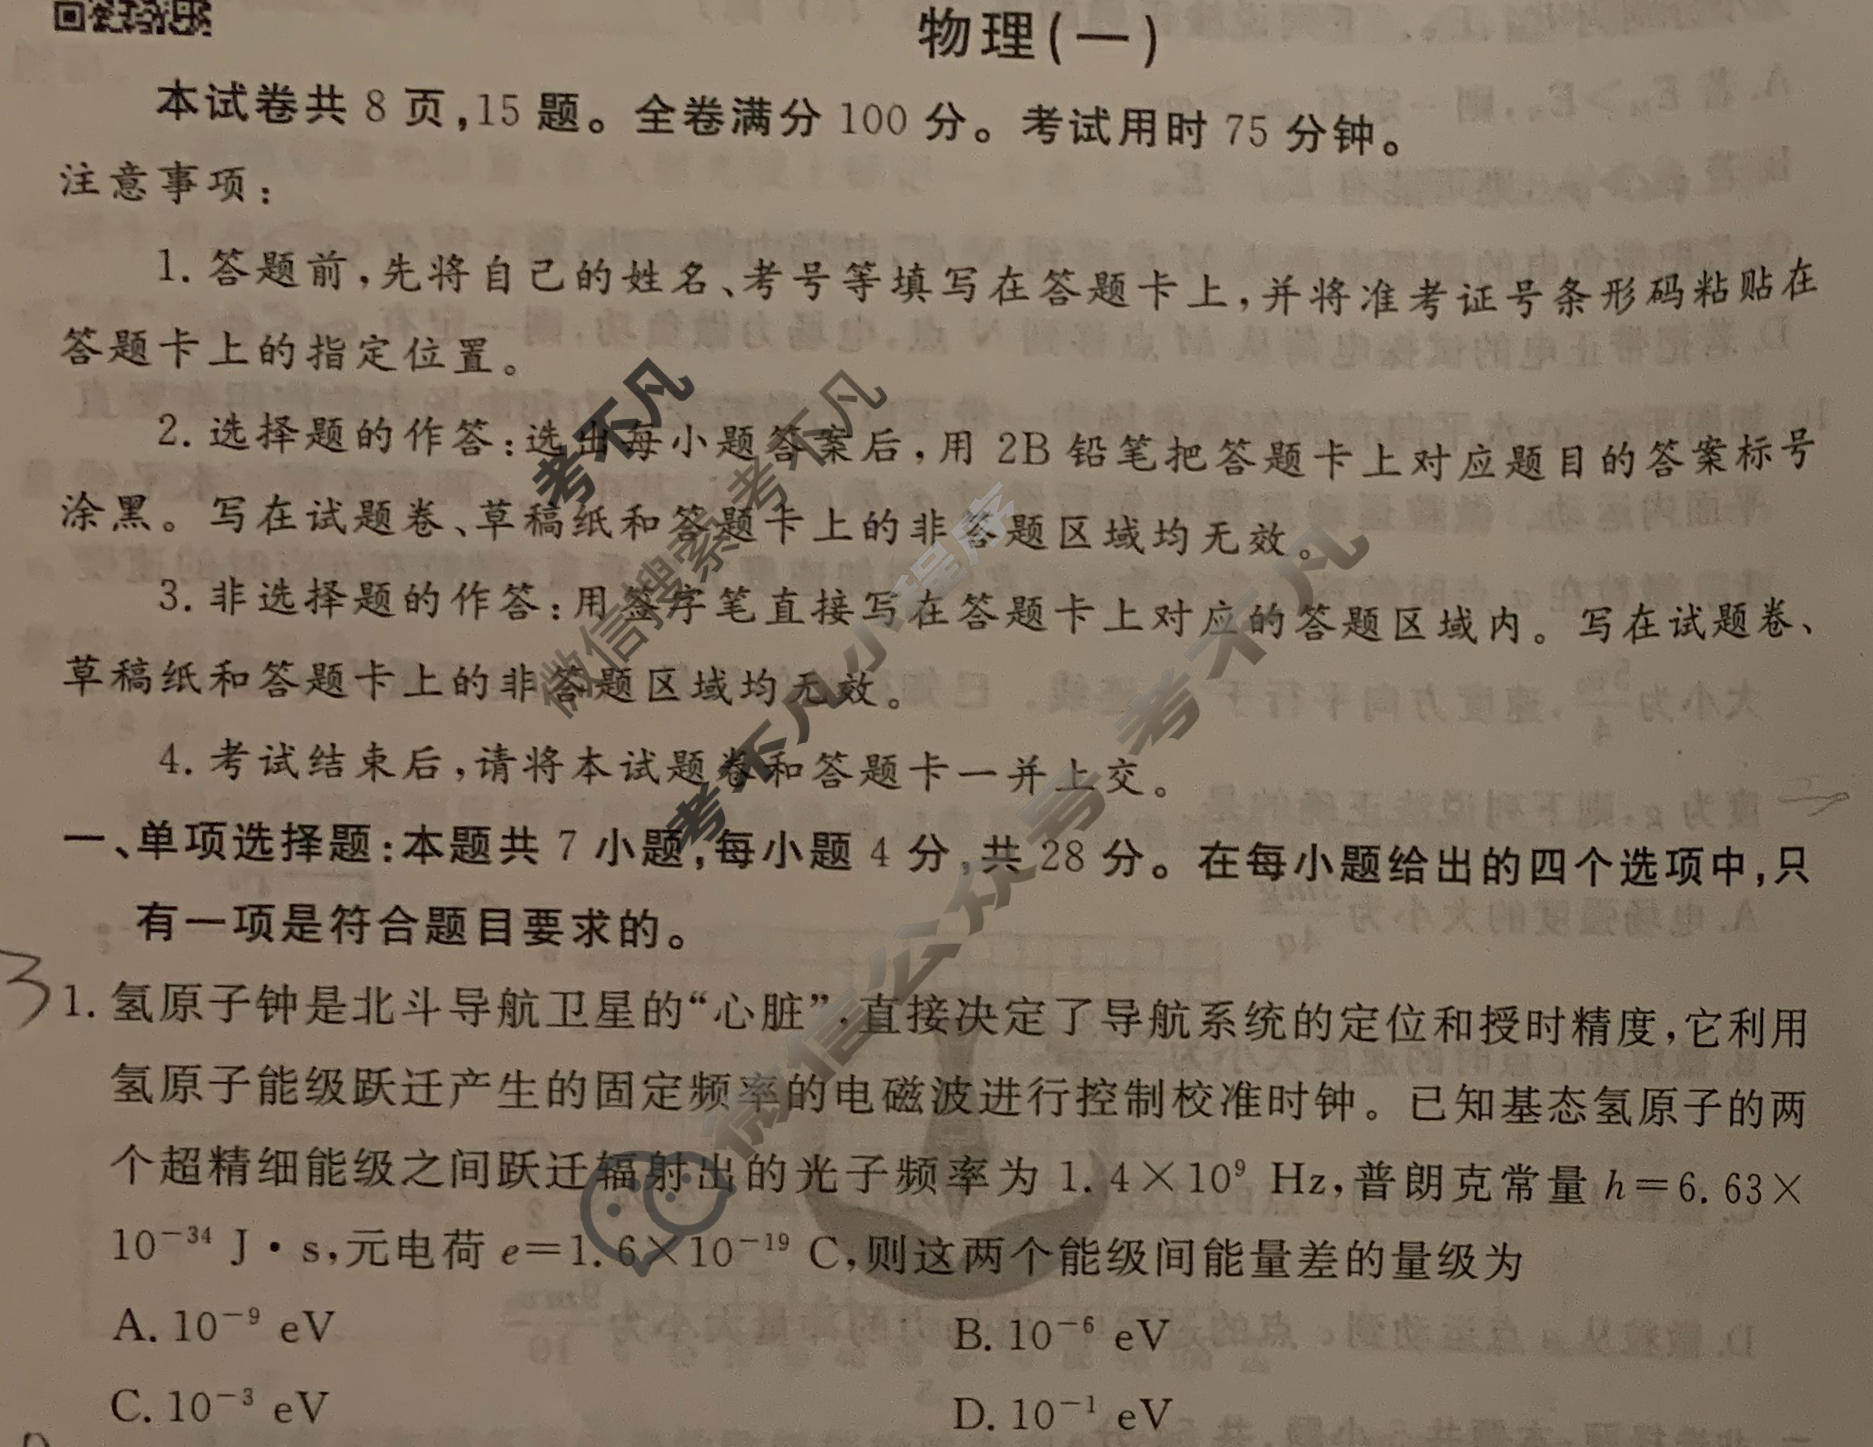 物理(一)
本试卷共 8 页,15 题。全卷满分 100 分。考试用时 75 分钟。
注意事项:
1. 答题前,先将自己的姓名、考号等填写在答题卡上,并将准考证号条形码粘贴在
答题卡上的指定位置。
2. 选择题的作答:选出每小题答案后,用 2B 铅笔把答题卡上对应题目的答案标号
涂黑。写在试题卷、草稿纸和答题卡上的非答题区域均无效。
3. 非选择题的作答:用签字笔直接写在答题卡上对应的答题区域内。写在试题卷、
草稿纸和答题卡上的非答题区域均无效。
4. 考试结束后,请将本试题卷和答题卡一并上交。
一、单项选择题:本题共 7 小题,每小题 4 分,共 28 分。在每小题给出的四个选项中,只
有一项是符合题目要求的。
3
1. 氢原子钟是北斗导航卫星的“心脏”,直接决定了导航系统的定位和授时精度,它利用
氢原子能级跃迁产生的固定频率的电磁波进行控制校准时钟。已知基态氢原子的两
个超精细能级之间跃迁辐射出的光子频率为 1.4×10⁹ Hz,普朗克常量 h=6.63×
10⁻³⁴ J·s,元电荷 e=1.6×10⁻¹⁹ C,则这两个能级间能量差的量级为
A. 10⁻⁹ eV B. 10⁻⁶ eV
C. 10⁻³ eV D. 10⁻¹ eV
考不凡
微信搜索考不凡
考不凡小程序
微信公众号考不凡